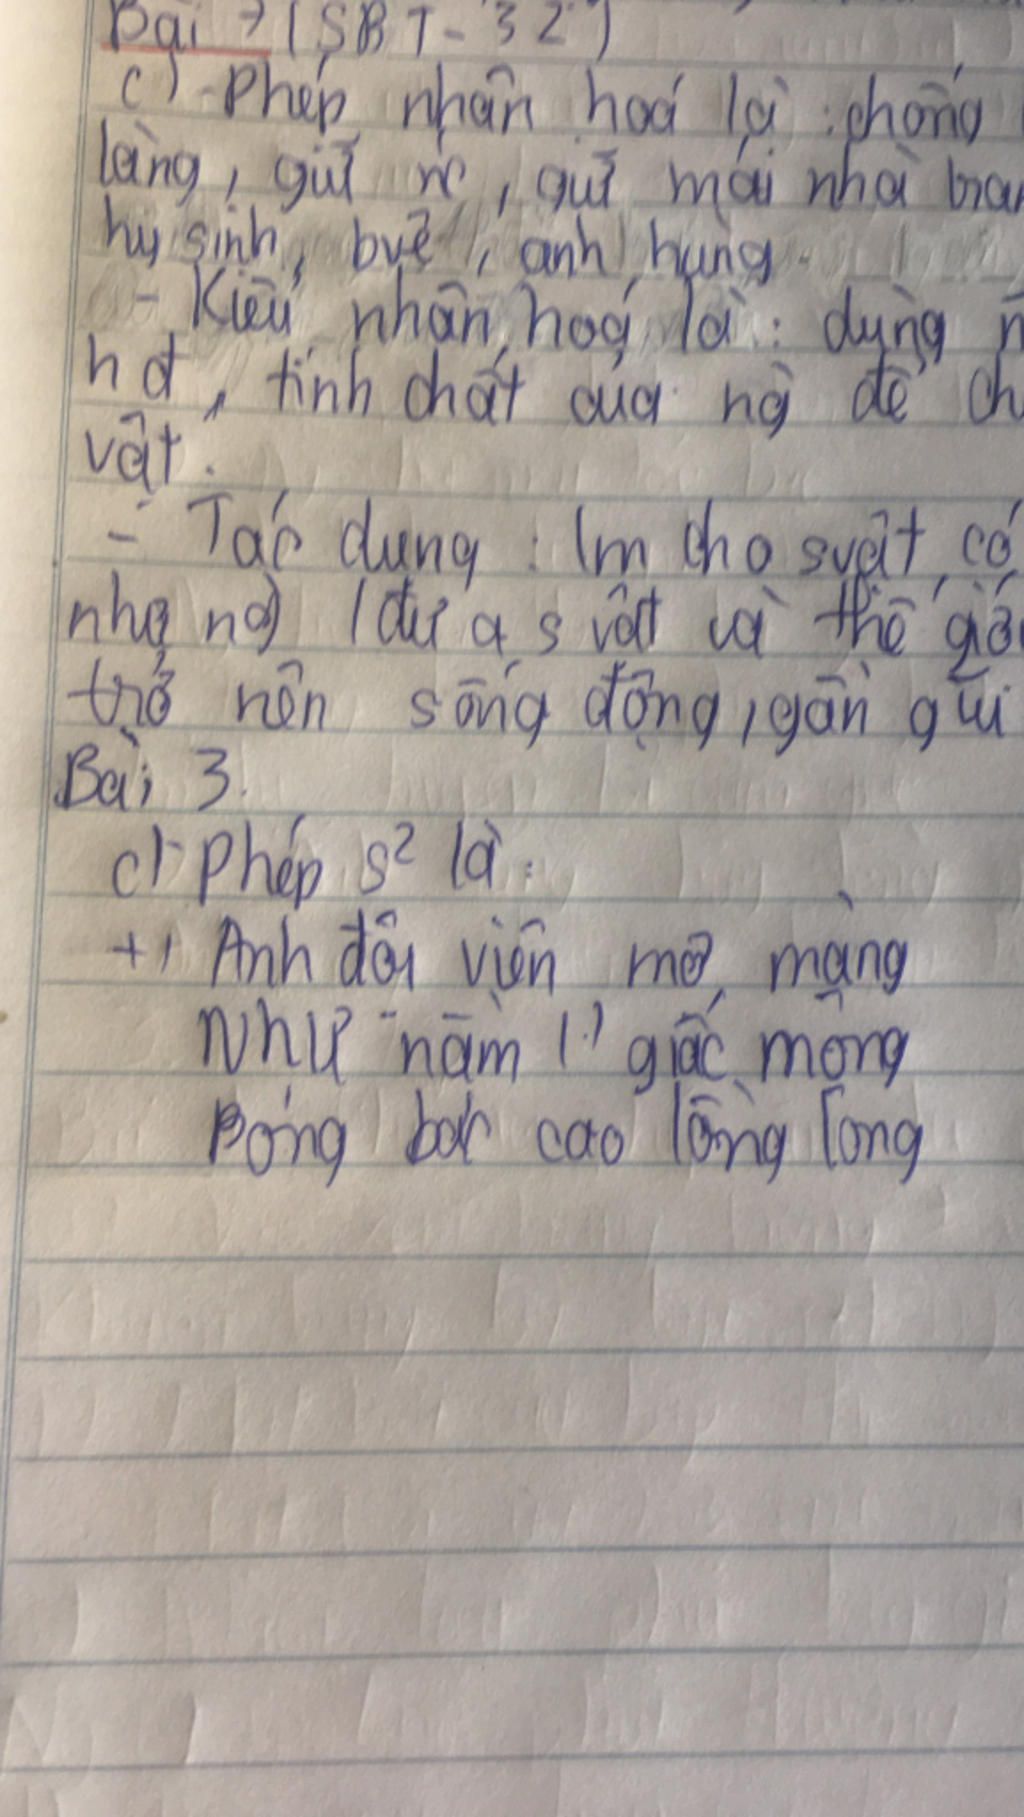 Bài 7 (SBT - 32)
c) - Phép nhân hoá là : chống
làng, giữ nc, giữ mái nhà tran
hy sinh, bvệ, anh hùng.
- Kiểu nhân hoá là : dùng n
hđ, tính chất của ng để ch
vật.
- Tác dụng : lm cho svật có
như ng
trở nên sống động, gần gũi
Bài 3.
c) - Phép s² là :
+, Anh đội viên mơ màng
Như nằm (.) giấc mộng
Bóng bác cao lồng lộng